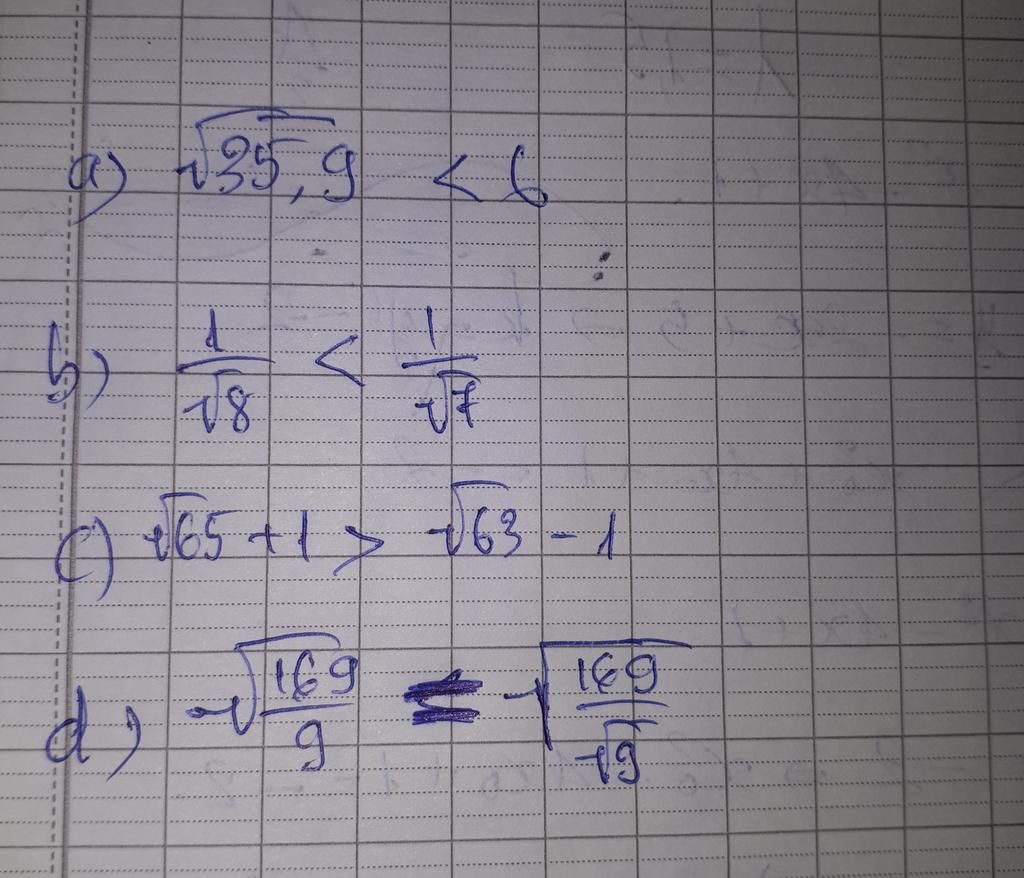 a) √35,9 < 6
b) 1/√8 < 1/√7
c) √65 + 1 > √63 - 1
d) √(169/9) = √(169/√9)